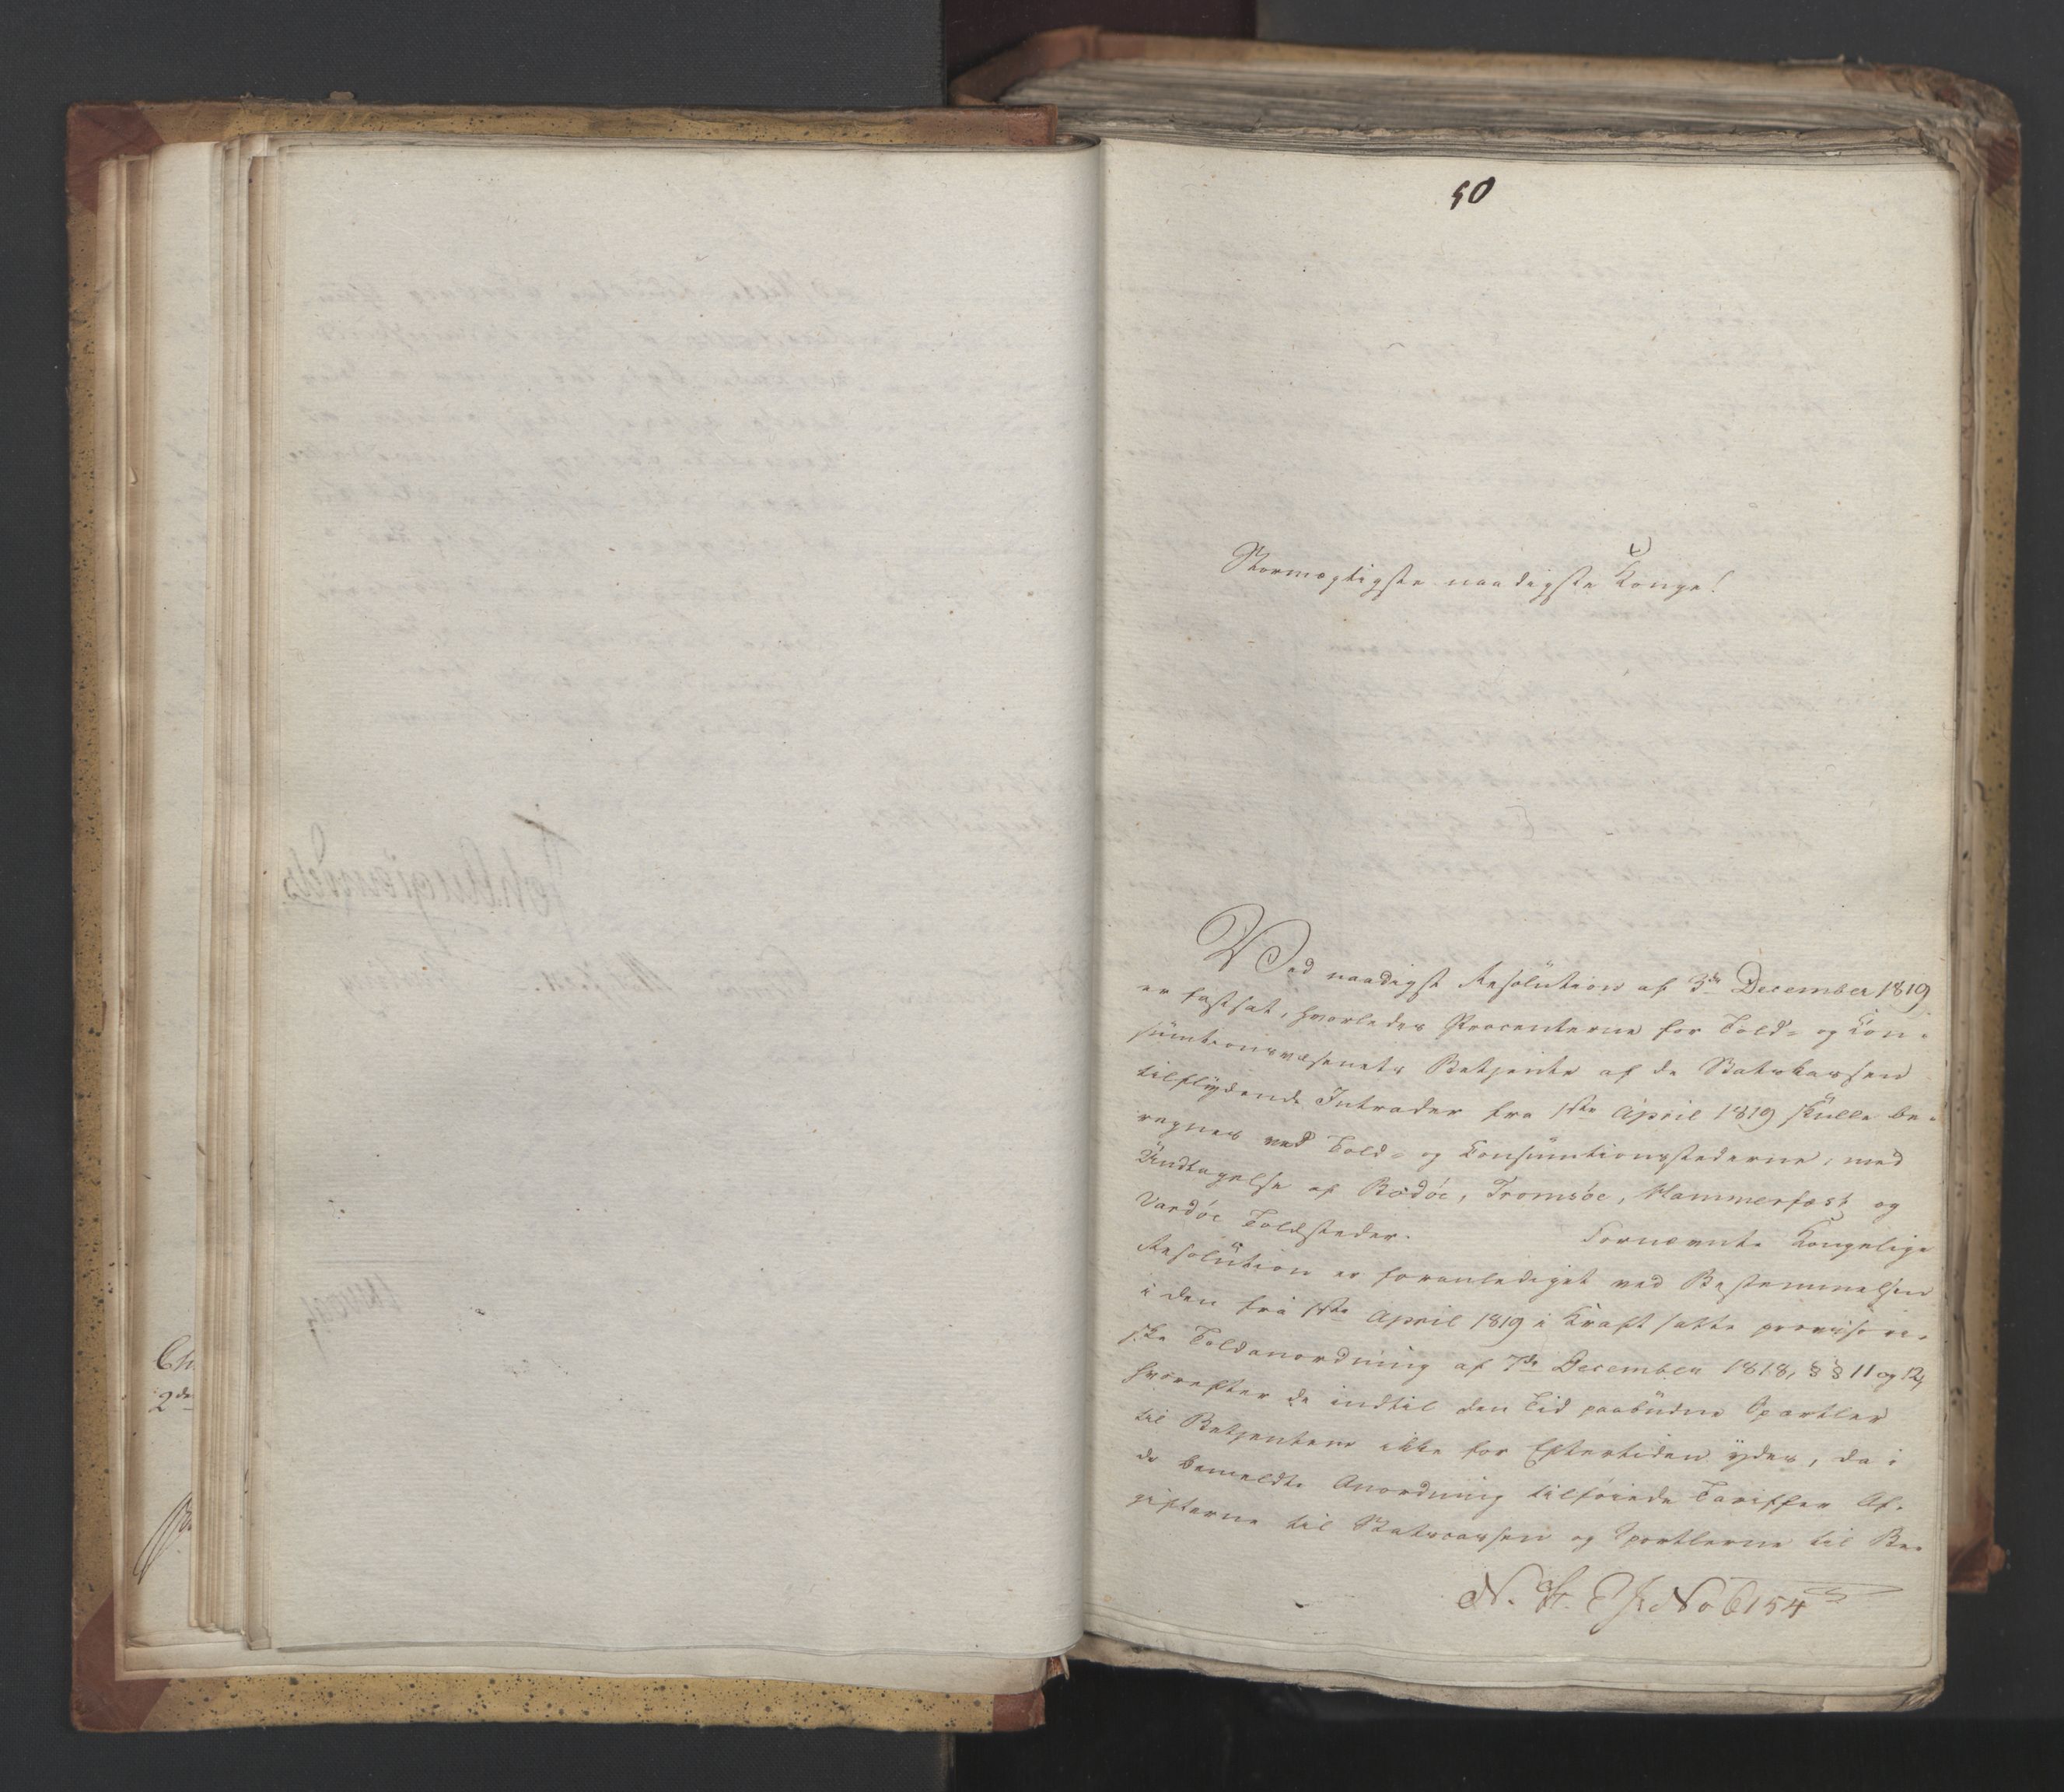 50
Stormægtigste naadigste Konge!
Ved naadigst Resolution af 3de December 1819
er fastsat, hvorledes Procenterne for Told- og Con-
sumtionsvæsenets Betjente af de Statskassen
tilflydende Intrader fra 1ste April 1819 skulle be-
regnes ved Told- og Consumtionsstederne, med
Undtagelse af Bodøe, Tromsøe, Hammerfest og
Vardøe Toldsteder. Fornævnte Kongelige
Resolution er foranlediget ved Bestemmelsen
i den fra 1ste April 1819 i Kraft satte provisori-
ske Toldanordning af 7de December 1818, § § 11 og 12,
hvorefter de indtil den Tid paabudne Sportler
til Betjentene ikke for Eftertiden ydes, da i
de bemeldte Anordning tilføiede Tariffer Af-
gifterne til Statscassen og Sportlerne til Be-
No 6154
Ch
2de